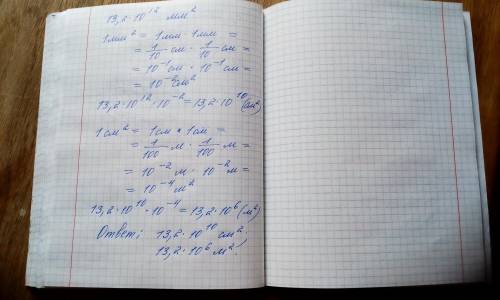 13,2·10¹² мм²
1мм² = 1мм · 1мм =
= 1/10 см · 1/10 см =
= 10⁻¹см · 10⁻¹ см =
= 10⁻²см²
13,2·10¹²·10⁻²=13,2·10¹⁰(см²)
1см² = 1см · 1см =
= 1/100 м · 1/100 м =
= 10⁻² м · 10⁻² м =
= 10⁻⁴ м²
13,2·10¹⁰·10⁻⁴ = 13,2·10⁶ (м²)
Ответ: 13,2·10¹⁰ см².
13,2·10⁶ м².